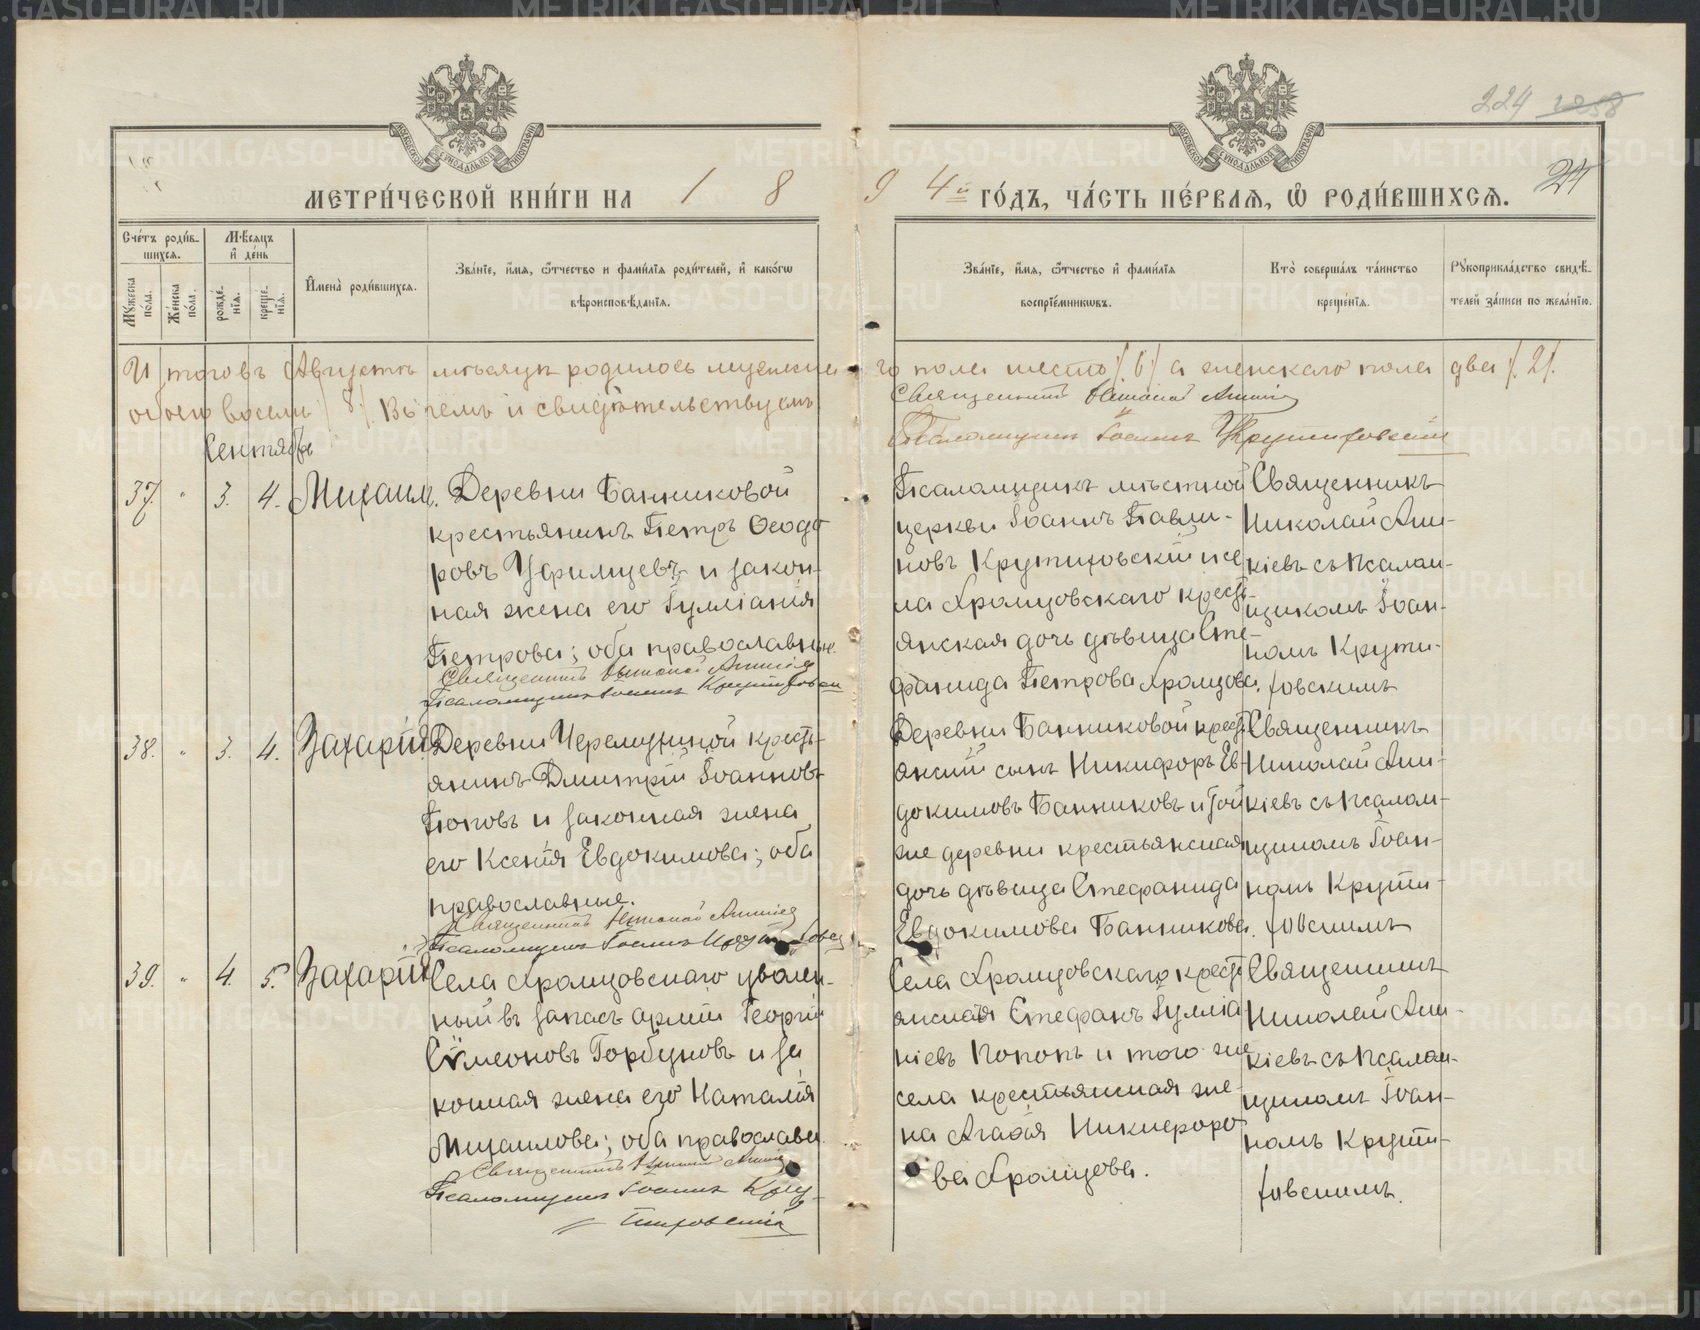 METRIKI.GASO-URAL.RU
224 1258
МОСКОВСКОЙ СѴНОДАЛЬНОЙ ТИПОГРАФІИ
МОСКОВСКОЙ СѴНОДАЛЬНОЙ ТИПОГРАФІИ
МЕТРИ́ЧЕСКОЙ КНИ́ГИ НА 1 8 9 4й ГО́ДЪ, ЧА́СТЬ ПЕ́РВАѦ, Ѡ РОДИ́ВШИХСѦ. 24
Сче́тъ роди́в-
шихсѧ.
Му́жеска по́ла.
Же́нска по́ла.
Мѣ́сѧцъ и де́нь
рожде́нїѧ.
креще́нїѧ.
И҆мена̀ роди́вшихсѧ.
Зва́нїе, и҆́мѧ, ѻ҆́тчество и фами́лїѧ роди́телей, и҆ како́гѡ
вѣроисповѣ́данїѧ.
Зва́нїе, и҆́мѧ, ѻ҆́тчество и҆ фами́лїѧ
воспрїе́мникѡвъ.
Кто̀ соверша́лъ та́инство
креще́нїѧ.
Рꙋкоприкла́дство свидѣ́-
телей за́писи по жела́нїю.
Итого въ Августѣ мѣсяцѣ родилось мужска-го пола шесть /6/ а женскаго пола два /2/.
обоего восемь /8/ Въ чемъ и свидѣтельствуемъ
Священникъ Николай Аникіевъ
Псаломщикъ Іоаннъ Крутиховскій
Сентябрь
37. " 3. 4. Михаилъ.
Деревни Банниковой
крестьянинъ Петръ Ѳеодо
ровъ Уфимцевъ и закон-
ная жена его Іулліанія
Петрова; оба православные.
Священникъ Николай Аникіевъ
Псаломщикъ Іоаннъ Крутиховскій
Псаломщикъ мѣстной
церкви Іоаннъ Павли-
новъ Крутиховскій и се
ла Храмцовскаго кресть-
янская дочь дѣвица Сте-
фанида Петрова Храмцова.
Священникъ
Николай Ани-
кіевъ съ псалом-
щикомъ Іоан-
номъ Крути-
ховскимъ
38. " 3. 4. Захарія
Деревни Черемухиной кресть-
янинъ Дмитрій Іоанновъ
Поповъ и законная жена
его Ксенія Евдокимова; оба
православные.
Священникъ Николай Аникіевъ
Псаломщикъ Іоаннъ Крутиховскій
Деревни Банниковой кресть
янскій сынъ Никифоръ Ев-
докимовъ Банниковъ и той
же деревни крестьянская
дочь дѣвица Стефанида
Евдокимова Банникова.
Священникъ
Николай Ани-
кіевъ съ псалом-
щикомъ Іоан-
номъ Крути-
ховскимъ
39. " 4. 5. Захарія
Села Храмцовскаго уволен-
ный въ запасъ арміи Георгій
Сѷмеоновъ Горбуновъ и за
конная жена его Наталія
Михаилова; оба православн.
Священникъ Николай Аникіевъ
Псаломщикъ Іоаннъ Кру-
тиховскій
Села Храмцовскаго кресть
янская Стефанъ Іулліа
ніевъ Попопъ и того же
села крестьянская же-
на Агафія Никифоро
ва Храмцова.
Священникъ
Николай Ани-
кіевъ съ псалом-
щикомъ Іоан-
номъ Крути-
ховскимъ.